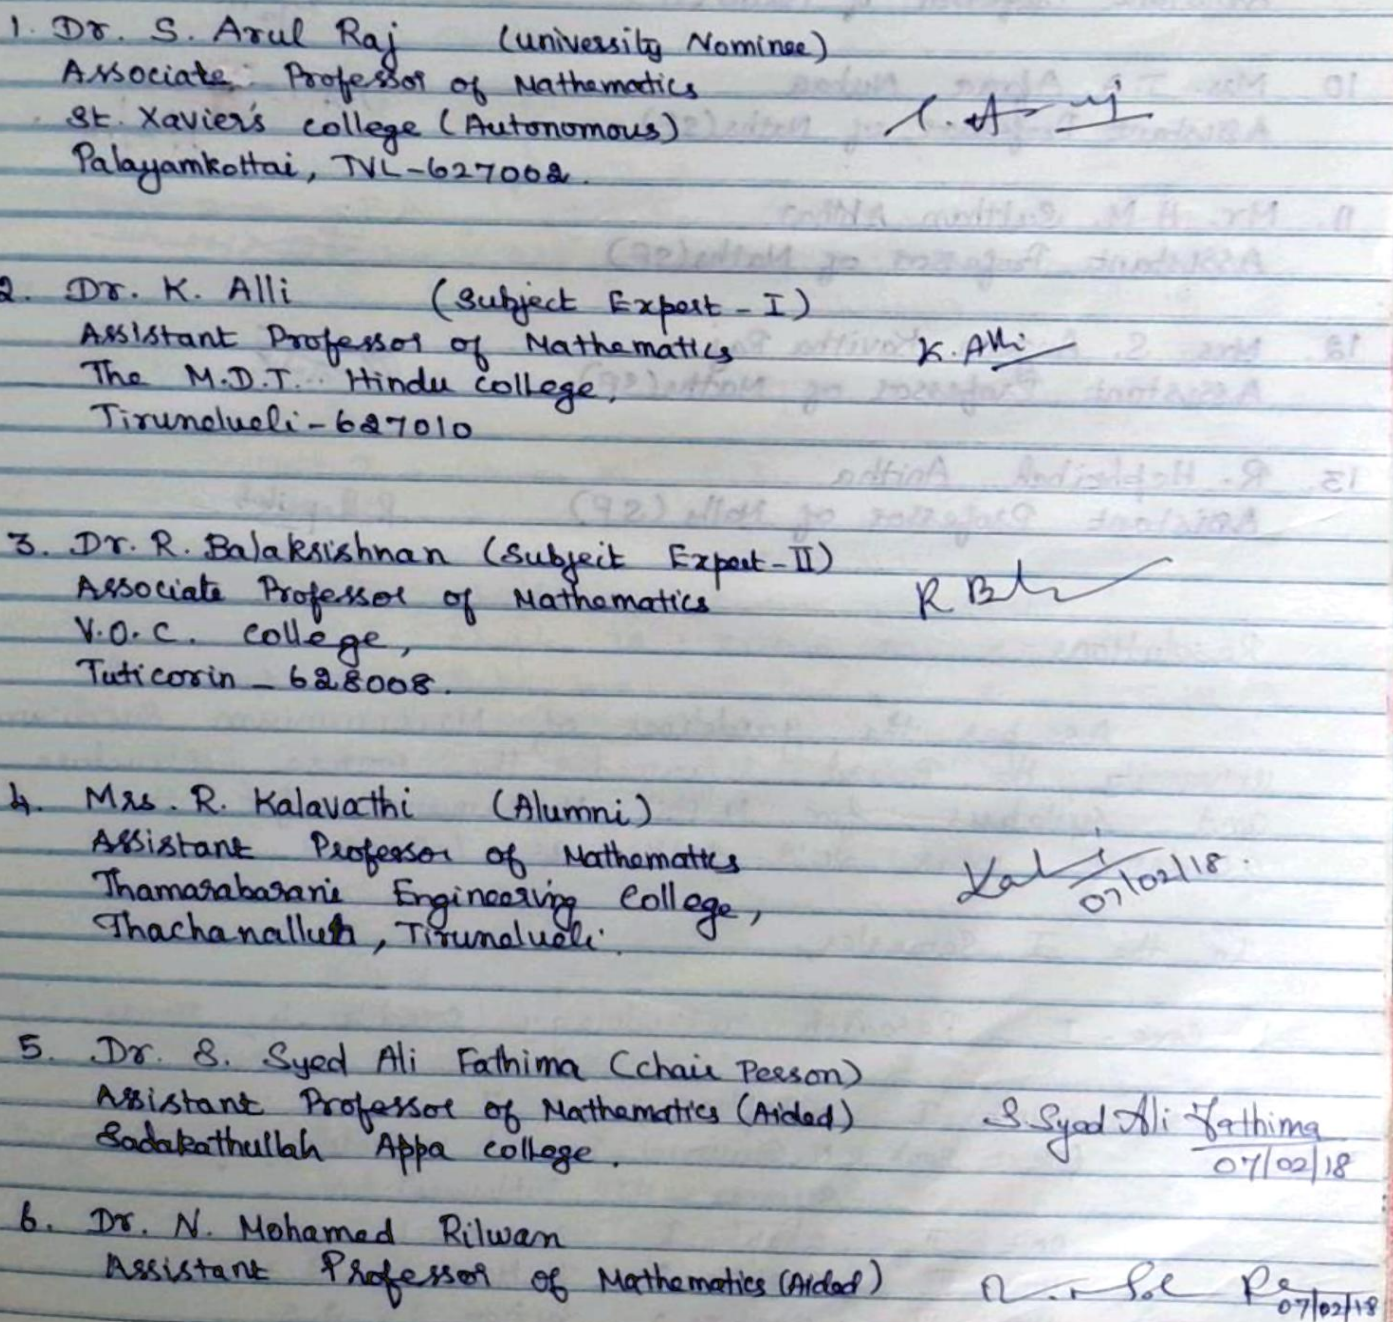 1. Dr. S. Arul Raj (University Nominee)
Associate Professor of Mathematics
St. Xavier's college (Autonomous)
Palayamkottai, TVL-627002.
2. Dr. K. Alli (Subject Expert - I)
Assistant Professor of Mathematics K. Alli
The M.D.T. Hindu college,
Tirunelveli - 627010
3. Dr. R. Balakrishnan (Subject Expert - II)
Associate Professor of Mathematics
V.O.C. college,
Tuticorin - 628008.
4. Mrs. R. Kalavathi (Alumni)
Assistant Professor of Mathematics
Thamarabarani Engineering College, 07/02/18.
Thachanallur, Tirunelveli.
5. Dr. S. Syed Ali Fathima (chair Person)
Assistant Professor of Mathematics (Aided) S Syed Ali Fathima
Sadakathullah Appa college. 07/02/18
6. Dr. N. Mohamed Rilwan
Assistant Professor of Mathematics (Aided)
07/02/18